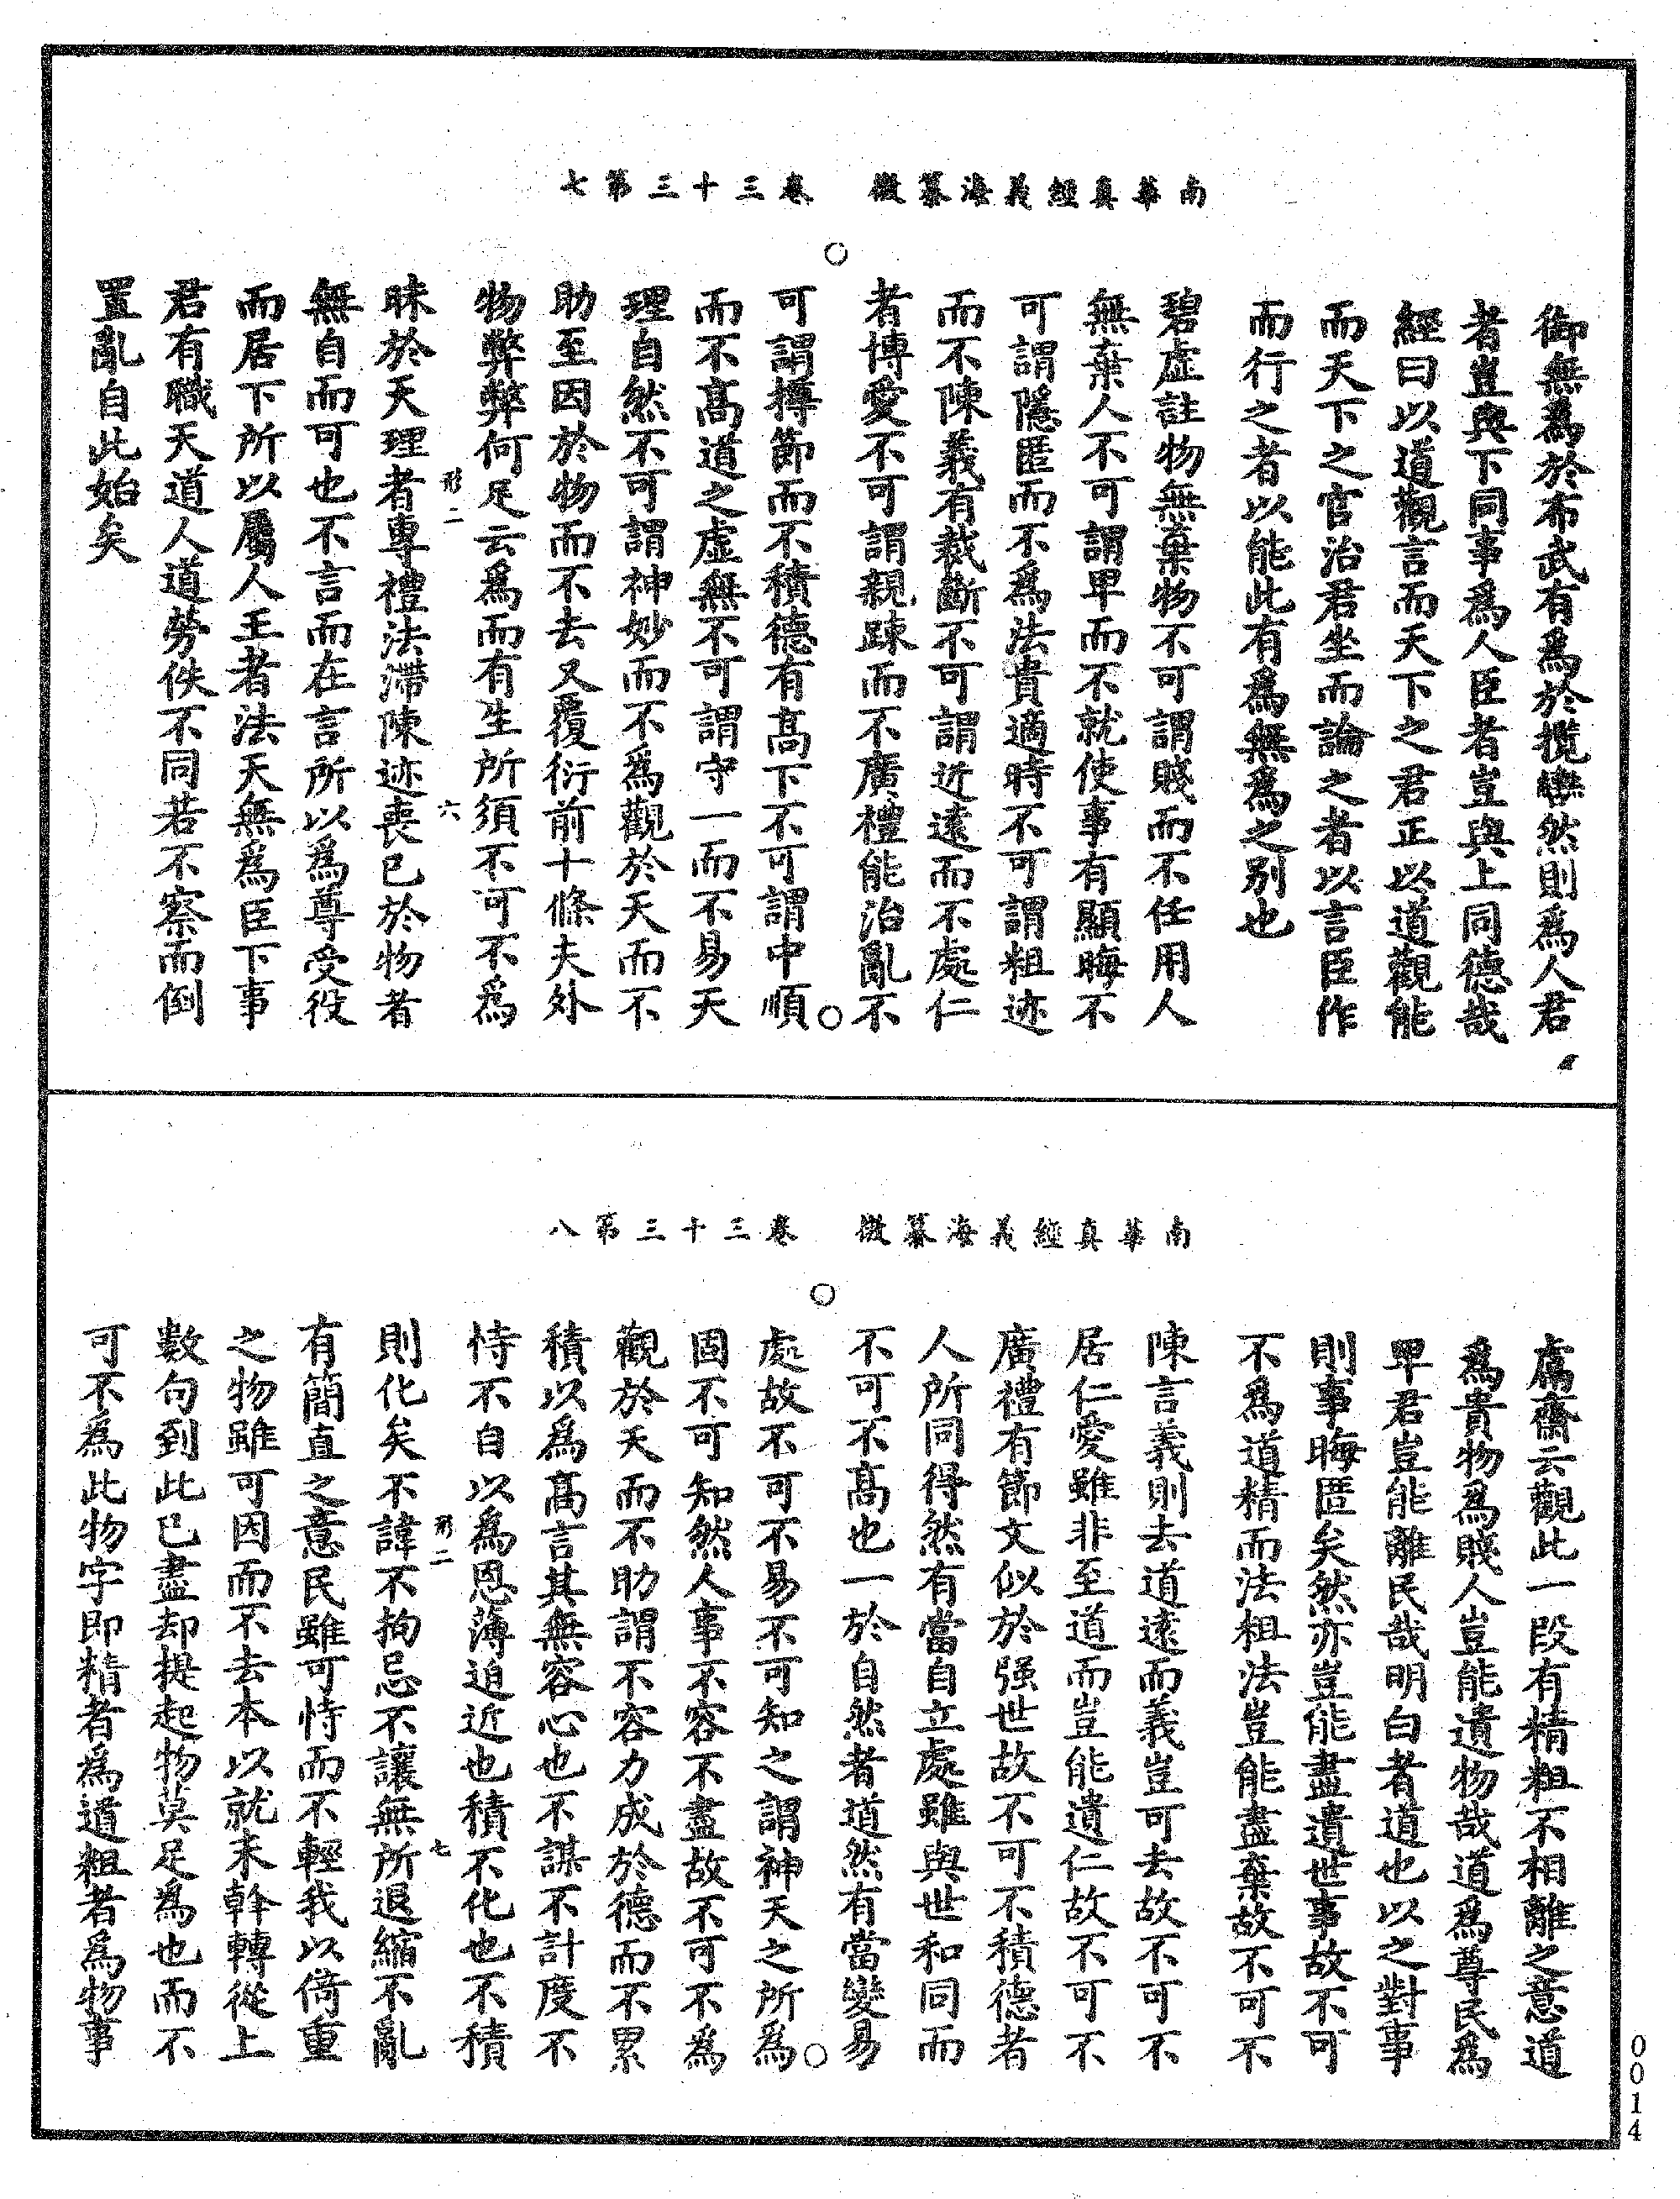 南華真經義海纂微　卷三十三第七
御無為於布武有為於攬轡然則為人君
者豈與下同事為人臣者豈與上同德哉
經曰以道觀言而天下之君正以道觀能
而天下之官治君坐而論之者以言臣作
而行之者以能此有為無為之別也
碧虛註物無棄物不可謂賤而不任用人
無棄人不可謂卑而不就使事有顯晦不
可謂隱匿而不為法貴適時不可謂粗迹
而不陳義有裁斷不可謂近遠而不處仁
者博愛不可謂親踈而不廣禮能治亂不
可謂撙節而不積德有高下不可謂中順
而不高道之虛無不可謂守一而不易天
理自然不可謂神妙而不為觀於天而不
助至因於物而不去又覆衍前十條夫外
物弊弊何足云為而有生所須不可不為
昧於天理者專禮法滯陳迹喪已於物者
無自而可也不言而在言所以為尊受役
而居下所以屬人王者法天無為臣下事
君有職天道人道勞佚不同若不察而倒
置亂自此始矣
形二
六
南華真經義海纂微　卷三十三第八
鬳齋云觀此一段有精粗不相離之意道
為貴物為賤人豈能遺物哉道為尊民為
卑君豈能離民哉明白者道也以之對事
則事晦匿矣然亦豈能盡遺世事故不可
不為道精而法粗法豈能盡棄故不可不
陳言義則去道遠而義豈可去故不可不
居仁愛雖非至道而豈能遺仁故不可不
廣禮有節文似於强世故不可不積德者
人所同得然有當自立處雖與世和同而
不可不高也一於自然者道然有當變易
處故不可不易不可知之謂神天之所為
固不可知然人事不容不盡故不可不為
觀於天而不助謂不容力成於德而不累
積以為高言其無容心也不謀不計度不
恃不自以為恩薄迫近也積不化也不積
則化矣不諱不拘忌不讓無所退縮不亂
有簡直之意民雖可恃而不輕我以倚重
之物雖可因而不去本以就末幹轉從上
數句到此已盡却提起物莫足為也而不
可不為此物字即精者為道粗者為物事
形二
七
0014